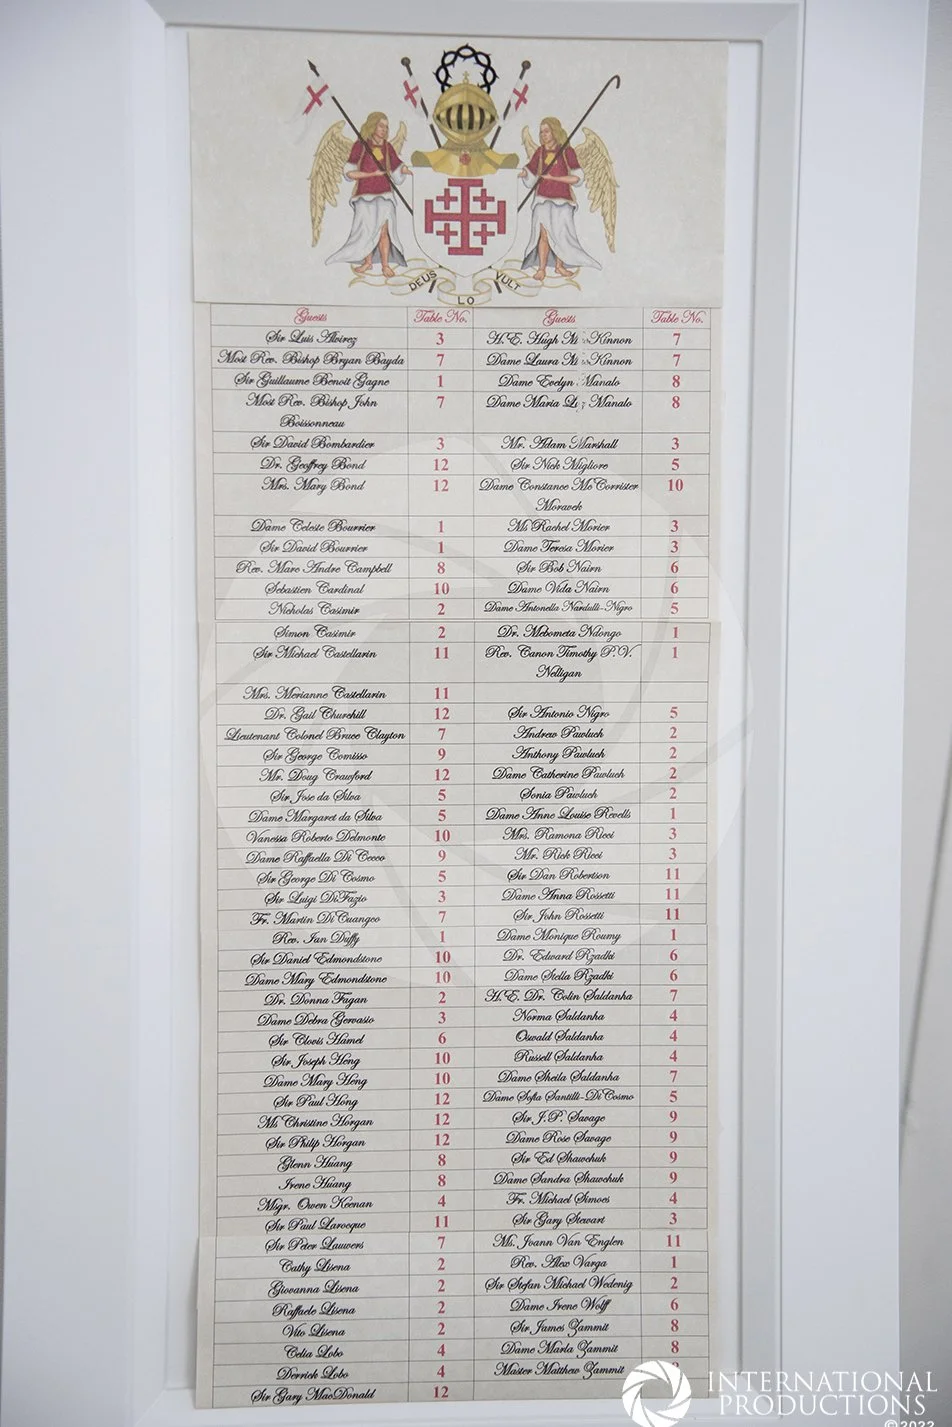 DEUS LO VULT
Guests Table No. Guests Table No.
Sir Luis Alvirez 3 H.E. Hugh Kinnon 7
Most Rev. Bishop Bryan Bayda 7 Dame Laura Kinnon 7
Sir Guillaume Benoit Gagne 1 Dame Evelyn Manalo 8
Most Rev. Bishop John 7 Dame Maria Manalo 8
Boissonneau
Sir David Bombardier 3 Mr. Adam Marshall 3
Dr. Geoffrey Bond 12 Sir Nick Migliore 5
Mrs. Mary Bond 12 Dame Constance McCorrister 10
Moravek
Dame Celeste Bourrier 1 Ms Rachel Morier 3
Sir David Bourrier 1 Dame Teresa Morier 3
Rev. Marc Andre Campbell 8 Sir Bob Nairn 6
Sebastien Cardinal 10 Dame Vida Nairn 6
Nicholas Casimir 2 Dame Antonella Nardulli-Nigro 5
Simon Casimir 2 Dr. Mebometa Ndongo 1
Sir Michael Castellarin 11 Rev. Canon Timothy P.V. 1
Nelligan
Mrs. Merianne Castellarin 11
Dr. Gail Churchill 12 Sir Antonio Nigro 5
Lieutenant Colonel Bruce Clayton 7 Andrew Pawluch 2
Sir George Comisso 9 Anthony Pawluch 2
Mr. Doug Crawford 12 Dame Catherine Pawluch 2
Sir Jose da Silva 5 Sonia Pawluch 2
Dame Margaret da Silva 5 Dame Anne Louise Revells 1
Vanessa Roberto Delmonte 10 Mrs. Ramona Ricci 3
Dame Raffaella Di Cecco 9 Mr. Rick Ricci 3
Sir George Di Cosmo 5 Sir Dan Robertson 11
Sir Luigi DiFazio 3 Dame Anna Rossetti 11
Fr. Martin DiCuangco 7 Sir John Rossetti 11
Rev. Ian Duffy 1 Dame Monique Roumy 1
Sir Daniel Edmondstone 10 Dr. Edward Rzadki 6
Dame Mary Edmondstone 10 Dame Stella Rzadki 6
Dr. Donna Fagan 2 H.E. Dr. Colin Saldanha 7
Dame Debra Gervasio 3 Norma Saldanha 4
Sir Clovis Hamel 6 Oswald Saldanha 4
Sir Joseph Heng 10 Russell Saldanha 4
Dame Mary Heng 10 Dame Sheila Saldanha 7
Sir Paul Hong 12 Dame Sofia Santilli-DiCosmo 5
Ms Christine Horgan 12 Sir J.P. Savage 9
Sir Philip Horgan 12 Dame Rose Savage 9
Glenn Huang 8 Sir Ed Shawchuk 9
Irene Huang 8 Dame Sandra Shawchuk 9
Msgr. Owen Keenan 4 Fr. Michael Simoes 4
Sir Paul Larocque 11 Sir Gary Stewart 3
Sir Peter Lauwers 7 Ms. Joann Van Englen 11
Cathy Lisena 2 Rev. Alex Varga 1
Giovanna Lisena 2 Sir Stefan Michael Wedenig 2
Raffaele Lisena 2 Dame Irene Wolff 6
Vito Lisena 2 Sir James Zammit 8
Celia Lobo 4 Dame Marla Zammit 8
Derrick Lobo 4 Master Matthew Zammit
Sir Gary MacDonald 12
INTERNATIONAL
PRODUCTIONS